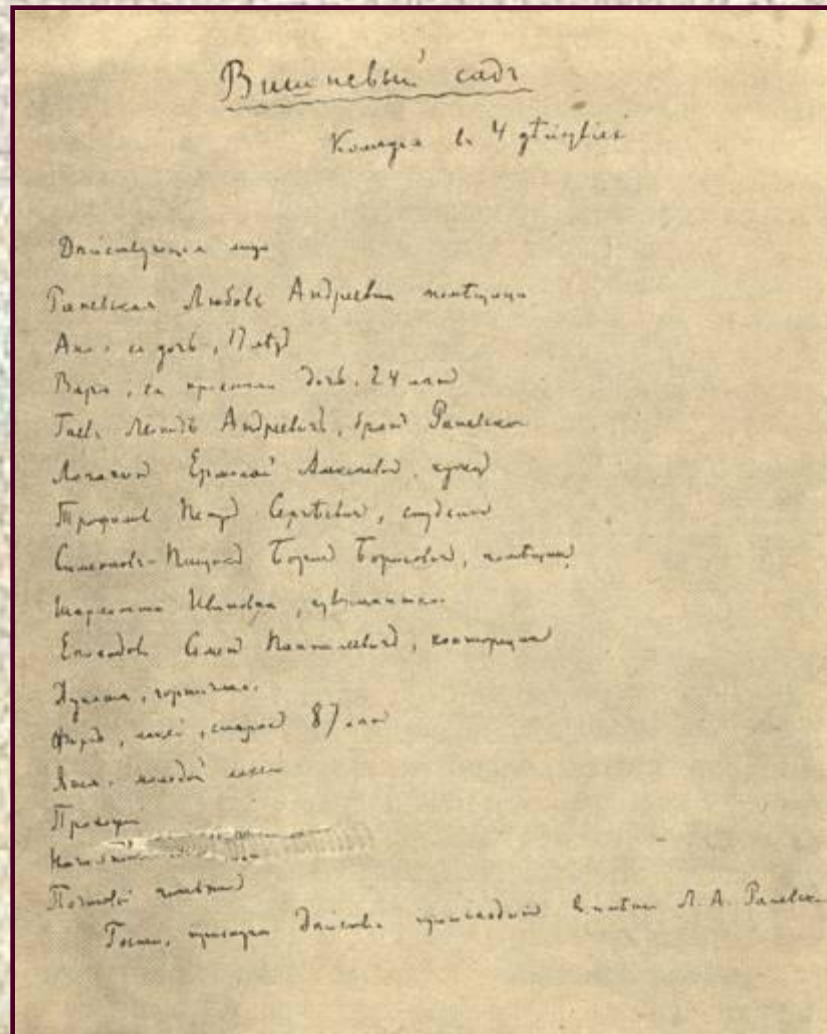 Вишневый садъ
Комедия въ 4 дѣйствіяхъ
Дѣйствующія лица
Раневская Любовь Андреевна помѣщица
Аня, ея дочь, 17 лѣтъ
Варя, ея пріемная дочь, 24 лѣтъ
Гаевъ Леонидъ Андреевичъ, братъ Раневской
Лопахинъ Ермолай Алексѣевичъ, купецъ
Трофимовъ Петръ Сергѣевичъ, студентъ
Симеоновъ-Пищикъ Борисъ Борисовичъ, помѣщикъ
Шарлотта Ивановна, гувернантка.
Епиходовъ Семенъ Пантелеевичъ, конторщикъ
Дуняша, горничная.
Фирсъ, лакей, старикъ 87 лѣтъ
Яша, молодой лакей
Прохожій
Почтовый чиновникъ
Гости, прислуга Дѣйствіе происходитъ въ имѣніи Л. А. Раневской